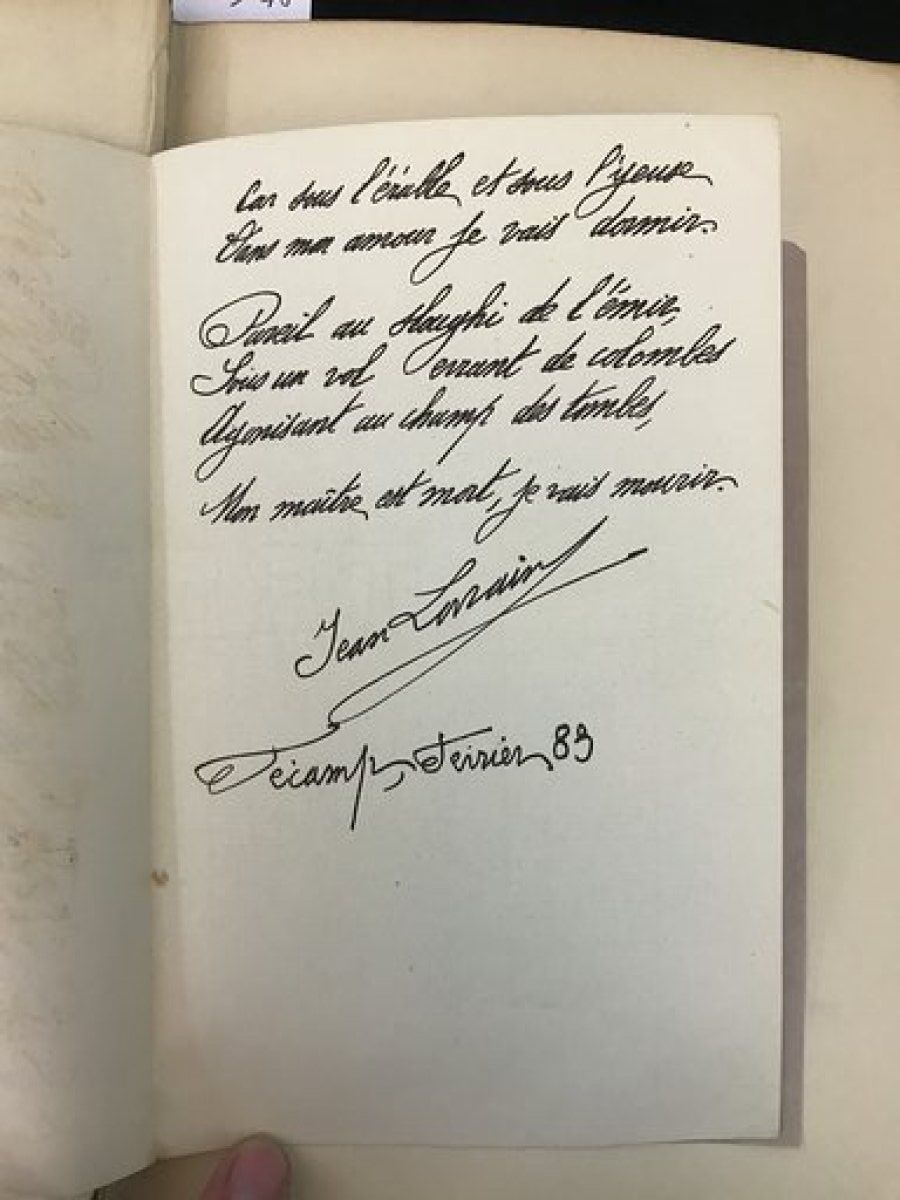 Car sous l'érable et sous l'yeuse
Dans mon amour je vais dormir.
Pareil au slaughi de l'émir,
Sous un vol errant de colombes
Agonisant au champ des tombes,
Mon maître est mort, je vais mourir.
Jean Lorrain
Fécamp, Février 83